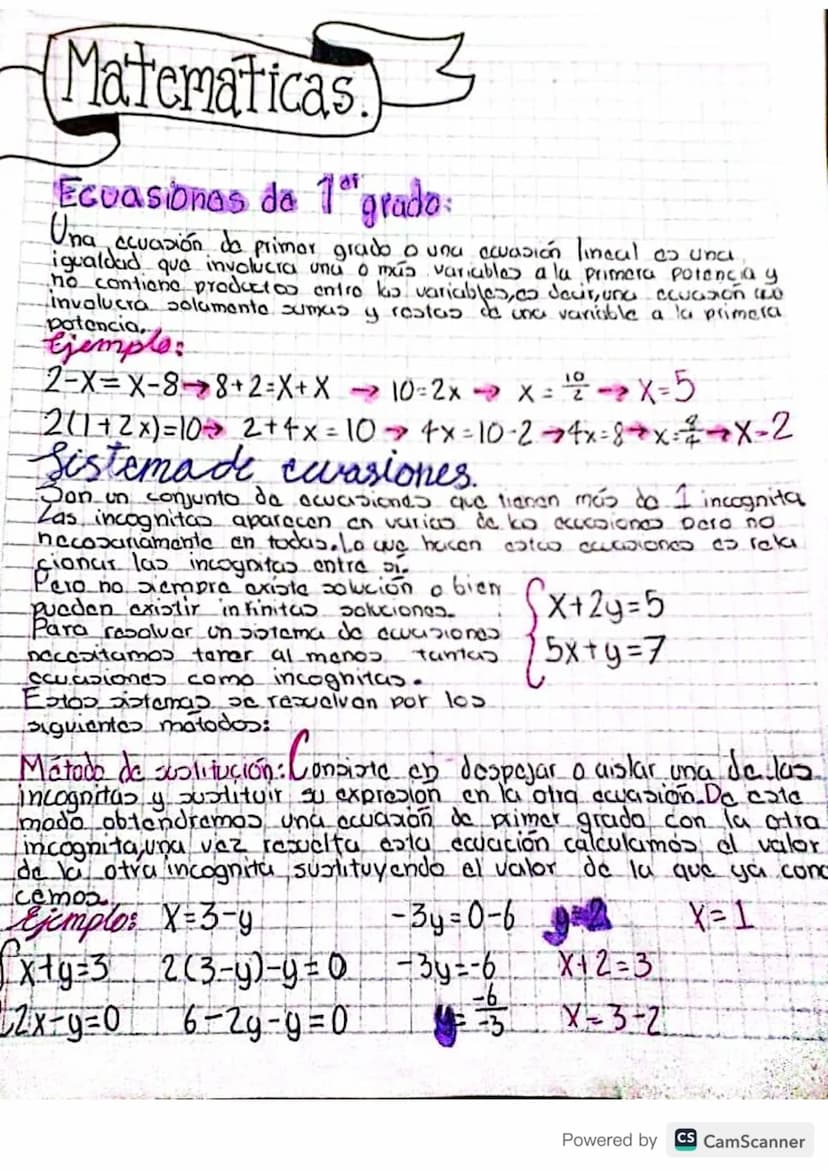 Matematicas.
Ecuasiones de 1er grado:
Una ecuasión de primer grado o una ecuasión lineal es una
igualdad que involucra una o más variables a la primera potencia y
no contiene productos entre las variables, es decir, una ecuasión que
involucra solamente sumas y restas de una variable a la primera
potencia.
Ejemplo:
2-x=x-8→8+2=x+x → 10=2x → x=10/2 → x=5
2(1+2x)=10→ 2+4x=10 → 4x=10-2→4x=8→x=8/4→x=2
Sistema de ecuasiones.
Son un conjunto de ecuasiones que tienen más de 1 incognita
Las incognitas aparecen en varias de las ecuasiones pero no
necesariamente en todas. Lo que hacen estas ecuasiones es rela
cionar las incognitas entre si.
Pero no siempre existe solución o bien
pueden existir infinitas soluciones.
Para resolver un sistema de ecuasiones
necesitamos tener al menos tantas
ecuasiones como incognitas.
x+2y=5
5x+y=7
Estos sistemas se resuelven por los
siguientes métodos:
Método de sustitución: Consiste en despejar o aislar una de las
incognitas y sustituir su expresión en la otra ecuasión. De este
modo obtendremos una ecuasión de primer grado con la otra
incognita, una vez resuelta esta ecuación calculamos el valor
de la otra incognita sustituyendo el valor de la que ya cono
cemos.
Ejemplo: x=3-y -3y=0-6 y=2 x=1
x+y=3 2(3-y)-y=0 -3y=-6 x+2=3
2x-y=0 6-2y-y=0 y=-6/-3 x=3-2
Powered by CS CamScanner